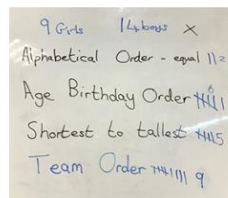 9 Girls 14 boys X
Alphabetical Order - equal || 2
Age Birthday Order 6
Shortest to tallest 5
Team Order 9